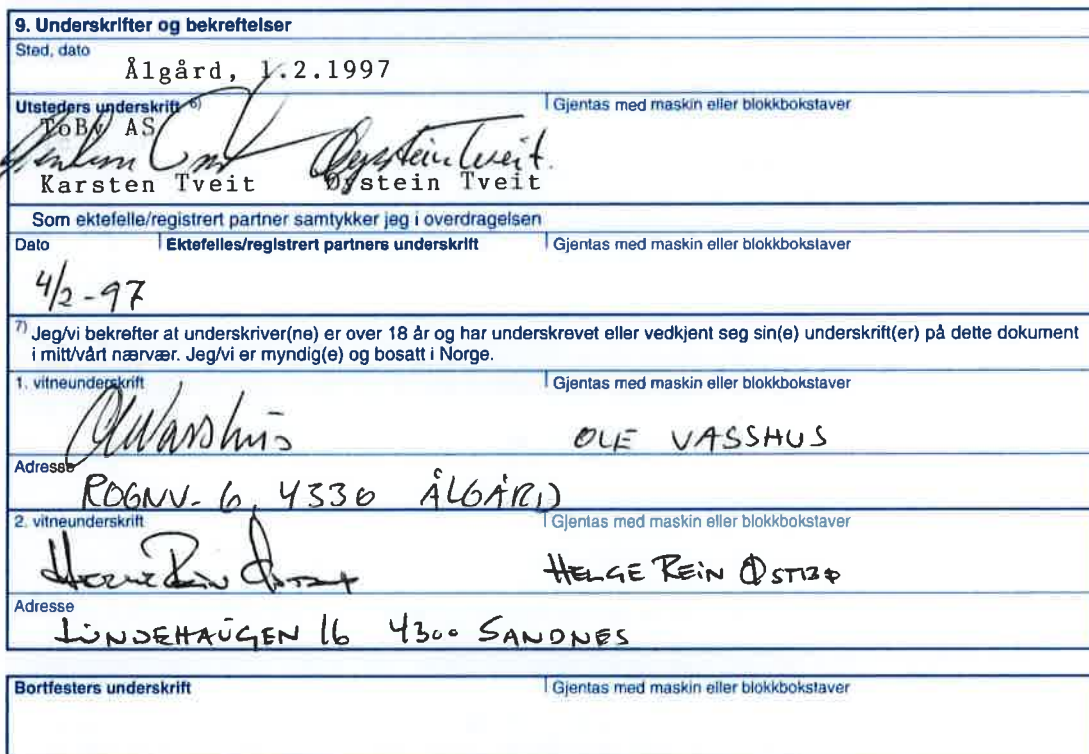 9. Underskrifter og bekreftelser
Sted, dato
Ålgård, 1.2.1997
Utsteders underskrift 6) Gjentas med maskin eller blokkbokstaver
ToBy AS
Øystein Tveit.
Karsten Tveit Øystein Tveit
Som ektefelle/registrert partner samtykker jeg i overdragelsen
Dato Ektefelles/registrert partners underskrift Gjentas med maskin eller blokkbokstaver
4/2-97
7) Jeg/vi bekrefter at underskriver(ne) er over 18 år og har underskrevet eller vedkjent seg sin(e) underskrift(er) på dette dokument
i mitt/vårt nærvær. Jeg/vi er myndig(e) og bosatt i Norge.
1. vitneunderskrift Gjentas med maskin eller blokkbokstaver
OLE VASSHUS
Adresse
ROGNV. 6, 4330 ÅLGÅRD
2. vitneunderskrift Gjentas med maskin eller blokkbokstaver
HELGE REIN ØSTBØ
Adresse
LUNDEHAUGEN 16 4300 SANDNES
Bortfesters underskrift Gjentas med maskin eller blokkbokstaver